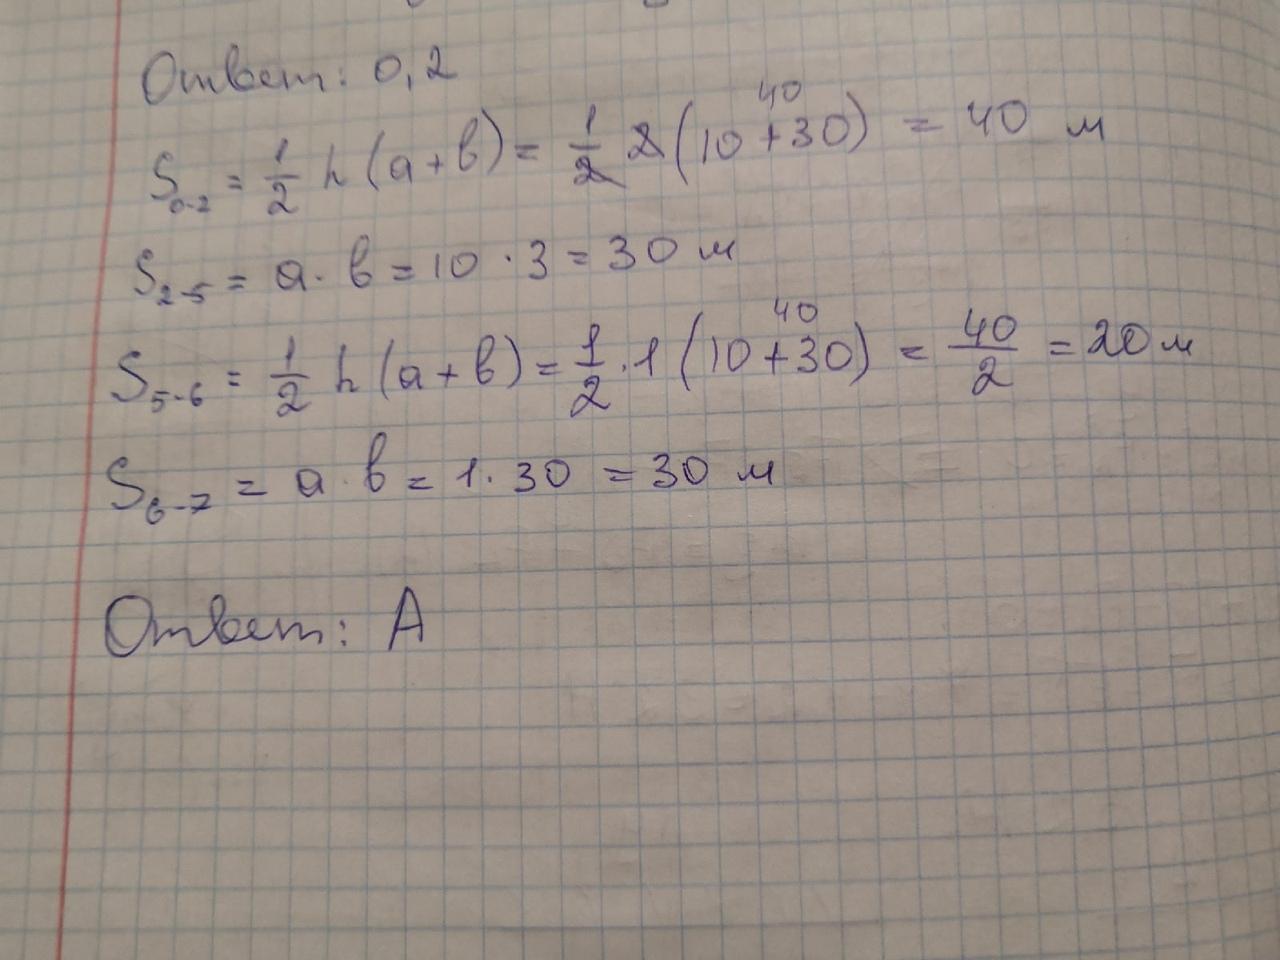 Ответ: 0,2
40
S₀₋₂ = 1/2 h (a + b) = 1/2 2 (10 + 30) = 40 м
S₂₋₅ = a · b = 10 · 3 = 30 м
40
S₅₋₆ = 1/2 h (a + b) = 1/2 · 1 (10 + 30) = 40/2 = 20 м
S₆₋₇ = a · b = 1 · 30 = 30 м
Ответ: А